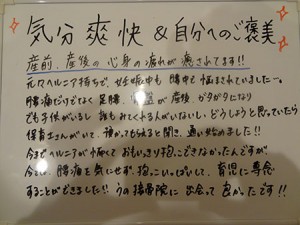 気分爽快＆自分へのご褒美
産前、産後の心身の疲れが癒されてます!!
元々ヘルニア持ちで、妊娠中も腰痛に悩まされていましたー。
腰痛だけでなく足腰、骨盤が産後、ガタガタになり
でも子供がいるし誰もみてくれる人がいないし、どうしようと思っていたら
保育士さんがいて、預かってもらえると聞き、通い始めました!!
今までヘルニアが怖くておもいっきり抱っこできなかったんですが
今では、腰痛を気にせず、抱っこいっぱいして、育児に専念
することができました!! うの接骨院に出会って良かったです!!